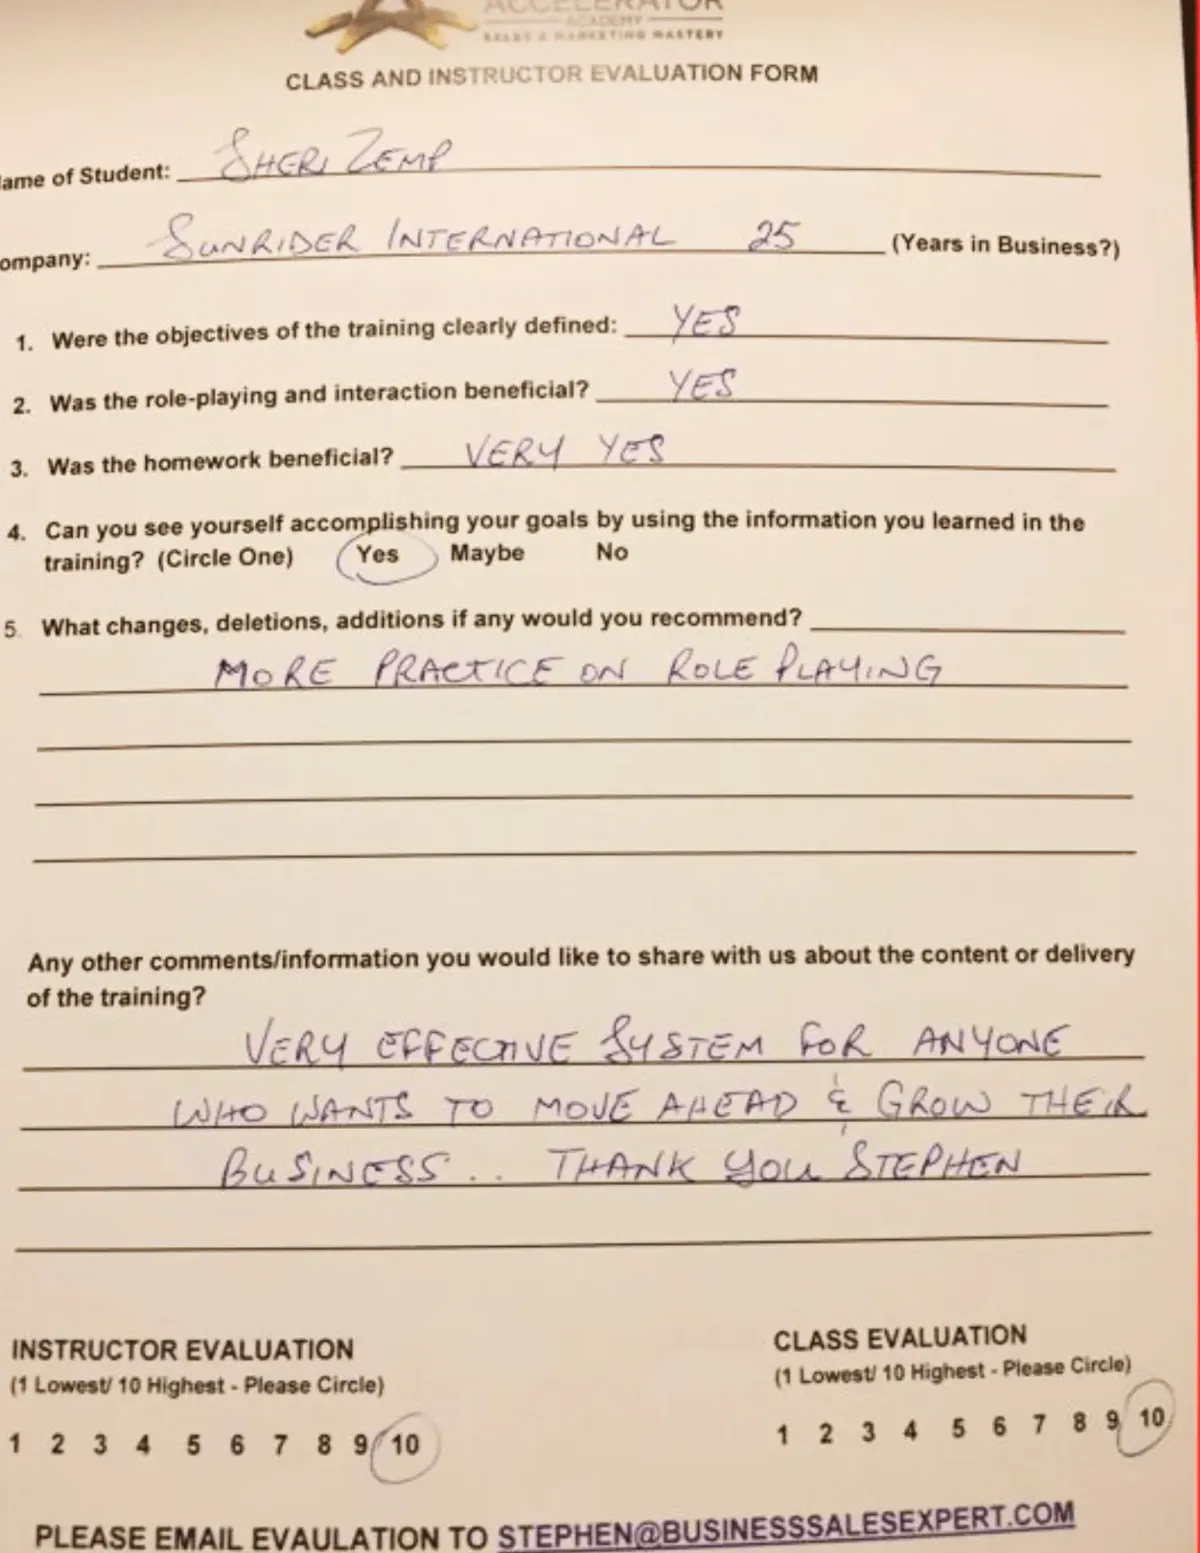 ACCELERATOR
ACADEMY
SALES & MARKETING MASTERY
CLASS AND INSTRUCTOR EVALUATION FORM
ame of Student: SHERI ZEMP
ompany: SUNRIDER INTERNATIONAL 25 (Years in Business?)
1. Were the objectives of the training clearly defined: YES
2. Was the role-playing and interaction beneficial? YES
3. Was the homework beneficial? VERY YES
4. Can you see yourself accomplishing your goals by using the information you learned in the
training? (Circle One) Yes Maybe No
5. What changes, deletions, additions if any would you recommend?
MORE PRACTICE ON ROLE PLAYING
Any other comments/information you would like to share with us about the content or delivery
of the training?
VERY EFFECTIVE SYSTEM FOR ANYONE
WHO WANTS TO MOVE AHEAD & GROW THEIR
BUSINESS.. THANK YOU STEPHEN
INSTRUCTOR EVALUATION
(1 Lowest/ 10 Highest - Please Circle)
1 2 3 4 5 6 7 8 9 10
CLASS EVALUATION
(1 Lowest/ 10 Highest - Please Circle)
1 2 3 4 5 6 7 8 9 10
PLEASE EMAIL EVAULATION TO STEPHEN@BUSINESSSALESEXPERT.COM